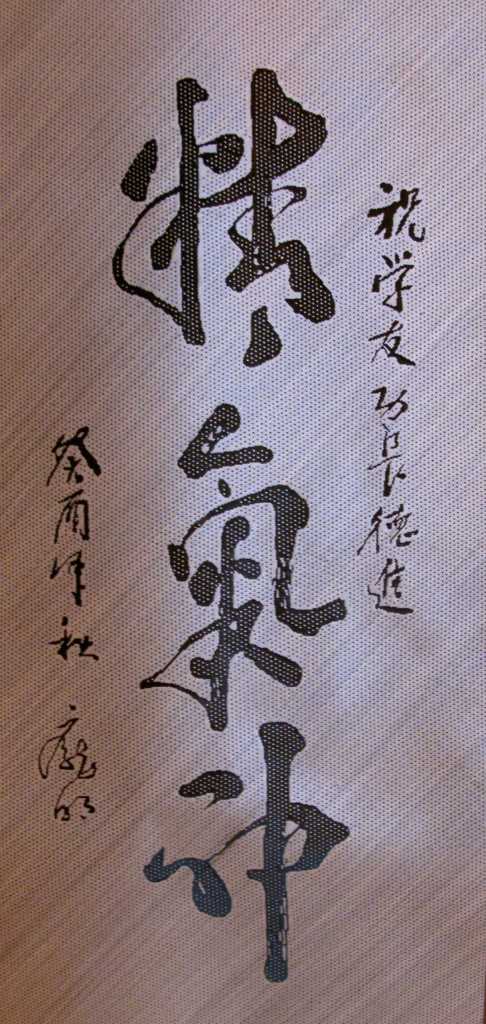 祝学友功长德進
精氣神
癸酉年秋 龐明